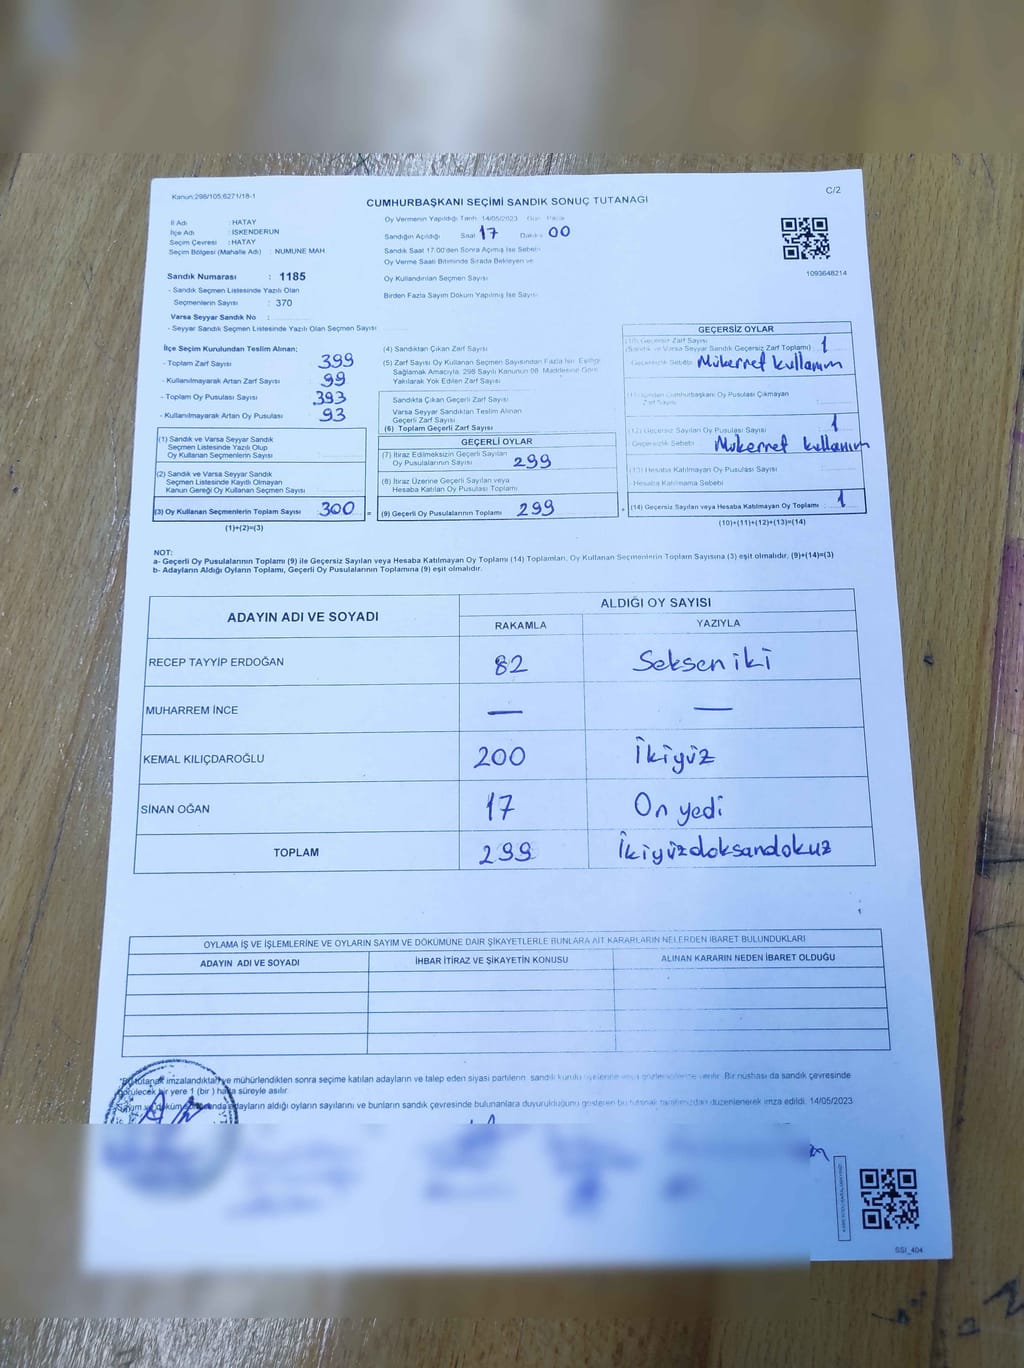 Kanun:298/105;6271/18-1
C/2
CUMHURBAŞKANI SEÇİMİ SANDIK SONUÇ TUTANAĞI
İl Adı : HATAY
İlçe Adı : İSKENDERUN
Seçim Çevresi : HATAY
Seçim Bölgesi (Mahalle Adı) : NUMUNE MAH
Sandık Numarası : 1185
- Sandık Seçmen Listesinde Yazılı Olan
Seçmenlerin Sayısı : 370
Varsa Seyyar Sandık No :
- Seyyar Sandık Seçmen Listesinde Yazılı Olan Seçmen Sayısı
Oy Vermenin Yapıldığı Tarih 14/05/2023 Gün Pazar
Sandığın Açıldığı Saat 17 Dakika 00
Sandık Saat 17:00'den Sonra Açımış İse Sebebi
Oy Verme Saati Bitiminde Sırada Bekleyen ve
Oy Kullandırılan Seçmen Sayısı
Birden Fazla Sayım Döküm Yapılmış İse Sayısı
1093648214
İlçe Seçim Kurulundan Teslim Alınan;
- Toplam Zarf Sayısı 399
- Kullanılmayarak Artan Zarf Sayısı 99
- Toplam Oy Pusulası Sayısı 393
- Kullanılmayarak Artan Oy Pusulası 93
(1) Sandık ve Varsa Seyyar Sandık
Seçmen Listesinde Yazılı Olup
Oy Kullanan Seçmenlerin Sayısı
(2) Sandık ve Varsa Seyyar Sandık
Seçmen Listesinde Kayıtlı Olmayan
Kanun Gereği Oy Kullanan Seçmen Sayısı
(3) Oy Kullanan Seçmenlerin Toplam Sayısı 300 =
(1)+(2)=(3)
(4) Sandıktan Çıkan Zarf Sayısı
(5) Zarf Sayısı Oy Kullanan Seçmen Sayısından Fazla İse Eşitliği
Sağlamak Amacıyla, 298 Sayılı Kanunun 98. Maddesine Göre
Yakılarak Yok Edilen Zarf Sayısı
Sandıkta Çıkan Geçerli Zarf Sayısı
Varsa Seyyar Sandıktan Teslim Alınan
Geçerli Zarf Sayısı
(6) Toplam Geçerli Zarf Sayısı
GEÇERLİ OYLAR
(7) İtiraz Edilmeksizin Geçerli Sayılan
Oy Pusulalarının Sayısı 299
(8) İtiraz Üzerine Geçerli Sayılan veya
Hesaba Katılan Oy Pusulası Toplamı
(9) Geçerli Oy Pusulalarının Toplamı 299 +
GEÇERSİZ OYLAR
(10) Geçersiz Zarf Sayısı
(Sandık ve Varsa Seyyar Sandık Geçersiz Zarf Toplamı) 1
Geçersizlik Sebebi Mükerret kullanım
Cumhurbaşkanı Oy Pusulası Çıkmayan
Zarf Sayısı
(12) Geçersiz Sayılan Oy Pusulası Sayısı 1
Geçersizlik Sebebi Mükerret kullanım
(13) Hesaba Katılmayan Oy Pusulası Sayısı
Hesaba Katılmama Sebebi
(14) Geçersiz Sayılan veya Hesaba Katılmayan Oy Toplamı 1
(10)+(11)+(12)+(13)=(14)
NOT:
a- Geçerli Oy Pusulalarının Toplamı (9) ile Geçersiz Sayılan veya Hesaba Katılmayan Oy Toplamı (14) Toplamları, Oy Kullanan Seçmenlerin Toplam Sayısına (3) eşit olmalıdır, (9)+(14)=(3)
b- Adayların Aldığı Oyların Toplamı, Geçerli Oy Pusulalarının Toplamına (9) eşit olmalıdır.
ADAYIN ADI VE SOYADI ALDIĞI OY SAYISI
RAKAMLA YAZIYLA
RECEP TAYYİP ERDOĞAN 82 Seksen iki
MUHARREM İNCE — —
KEMAL KILIÇDAROĞLU 200 İkiyüz
SİNAN OĞAN 17 On yedi
TOPLAM 299 İkiyüzdoksandokuz
OYLAMA İŞ VE İŞLEMLERİNE VE OYLARIN SAYIM VE DÖKÜMÜNE DAİR ŞİKAYETLERLE BUNLARA AİT KARARLARIN NELERDEN İBARET BULUNDUKLARI
ADAYIN ADI VE SOYADI İHBAR İTİRAZ VE ŞİKAYETİN KONUSU ALINAN KARARIN NEDEN İBARET OLDUĞU
tutanak imzalandıktan ve mühürlendikten sonra seçime katılan adayların ve talep eden siyasi partilerin sandık kurulu üyelerine veya gözlemcilerine verilir. Bir nüshası da sandık çevresinde
görülecek bir yere 1 (bir) hafta süreyle asılır.
adayların aldığı oyların sayılarını ve bunların sandık çevresinde bulunanlara duyurulduğunu gösteren bu tutanak tarafımızdan düzenlenerek imza edildi. 14/05/2023
SSI_404